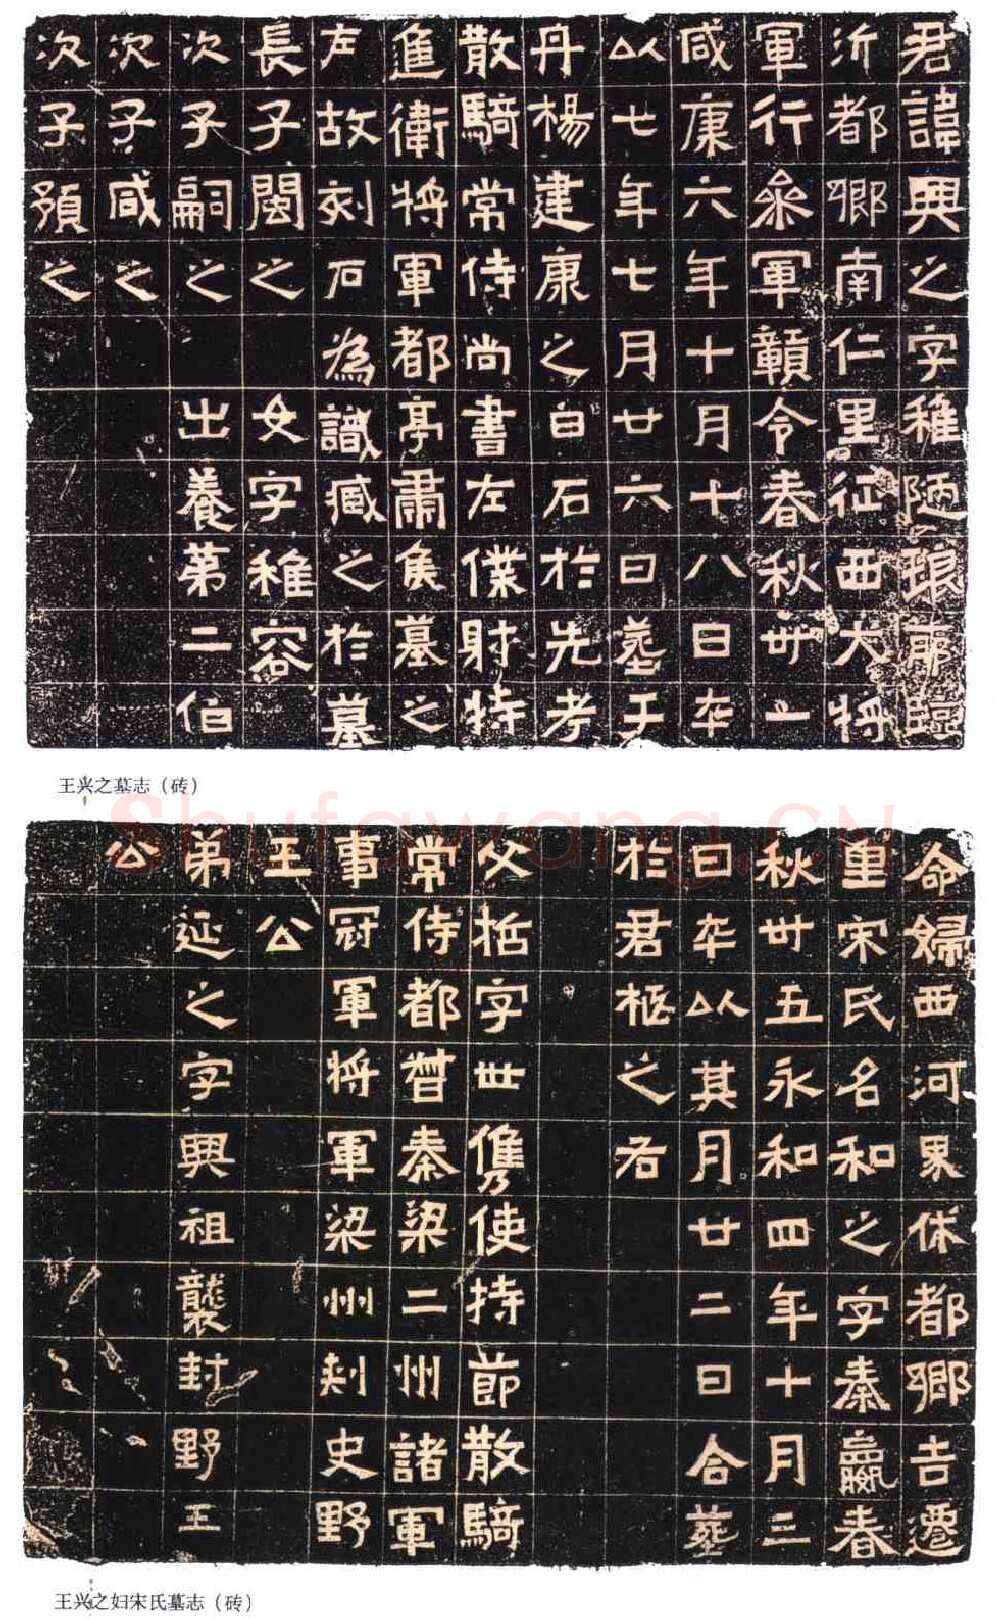 君諱興之字稚陋琅耶臨
沂都鄉南仁里征西大將
軍行叅軍贛令春秋卅一
咸康六年十月十八日卒
以七年七月廿六日塟于
丹楊建康之白石於先考
散騎常侍尚書左僕射特
進衛將軍都亭肅侯墓之
左故刻石為識臧之於墓
長子閩之 女字稚容
次子嗣之 出養第二伯
次子咸之
次子預之
王兴之墓志（砖）
Shufawang.CN
命婦西河界休都鄉吉遷
里宋氏名和之字秦嬴春
秋卅五永和四年十月三
日卒以其月廿二日合塟
於君柩之右
父哲字世儁使持節散騎
常侍都督秦梁二州諸軍
事冠軍將軍梁州刺史野
王公
弟延之字興祖襲封野王
公
王兴之妇宋氏墓志（砖）